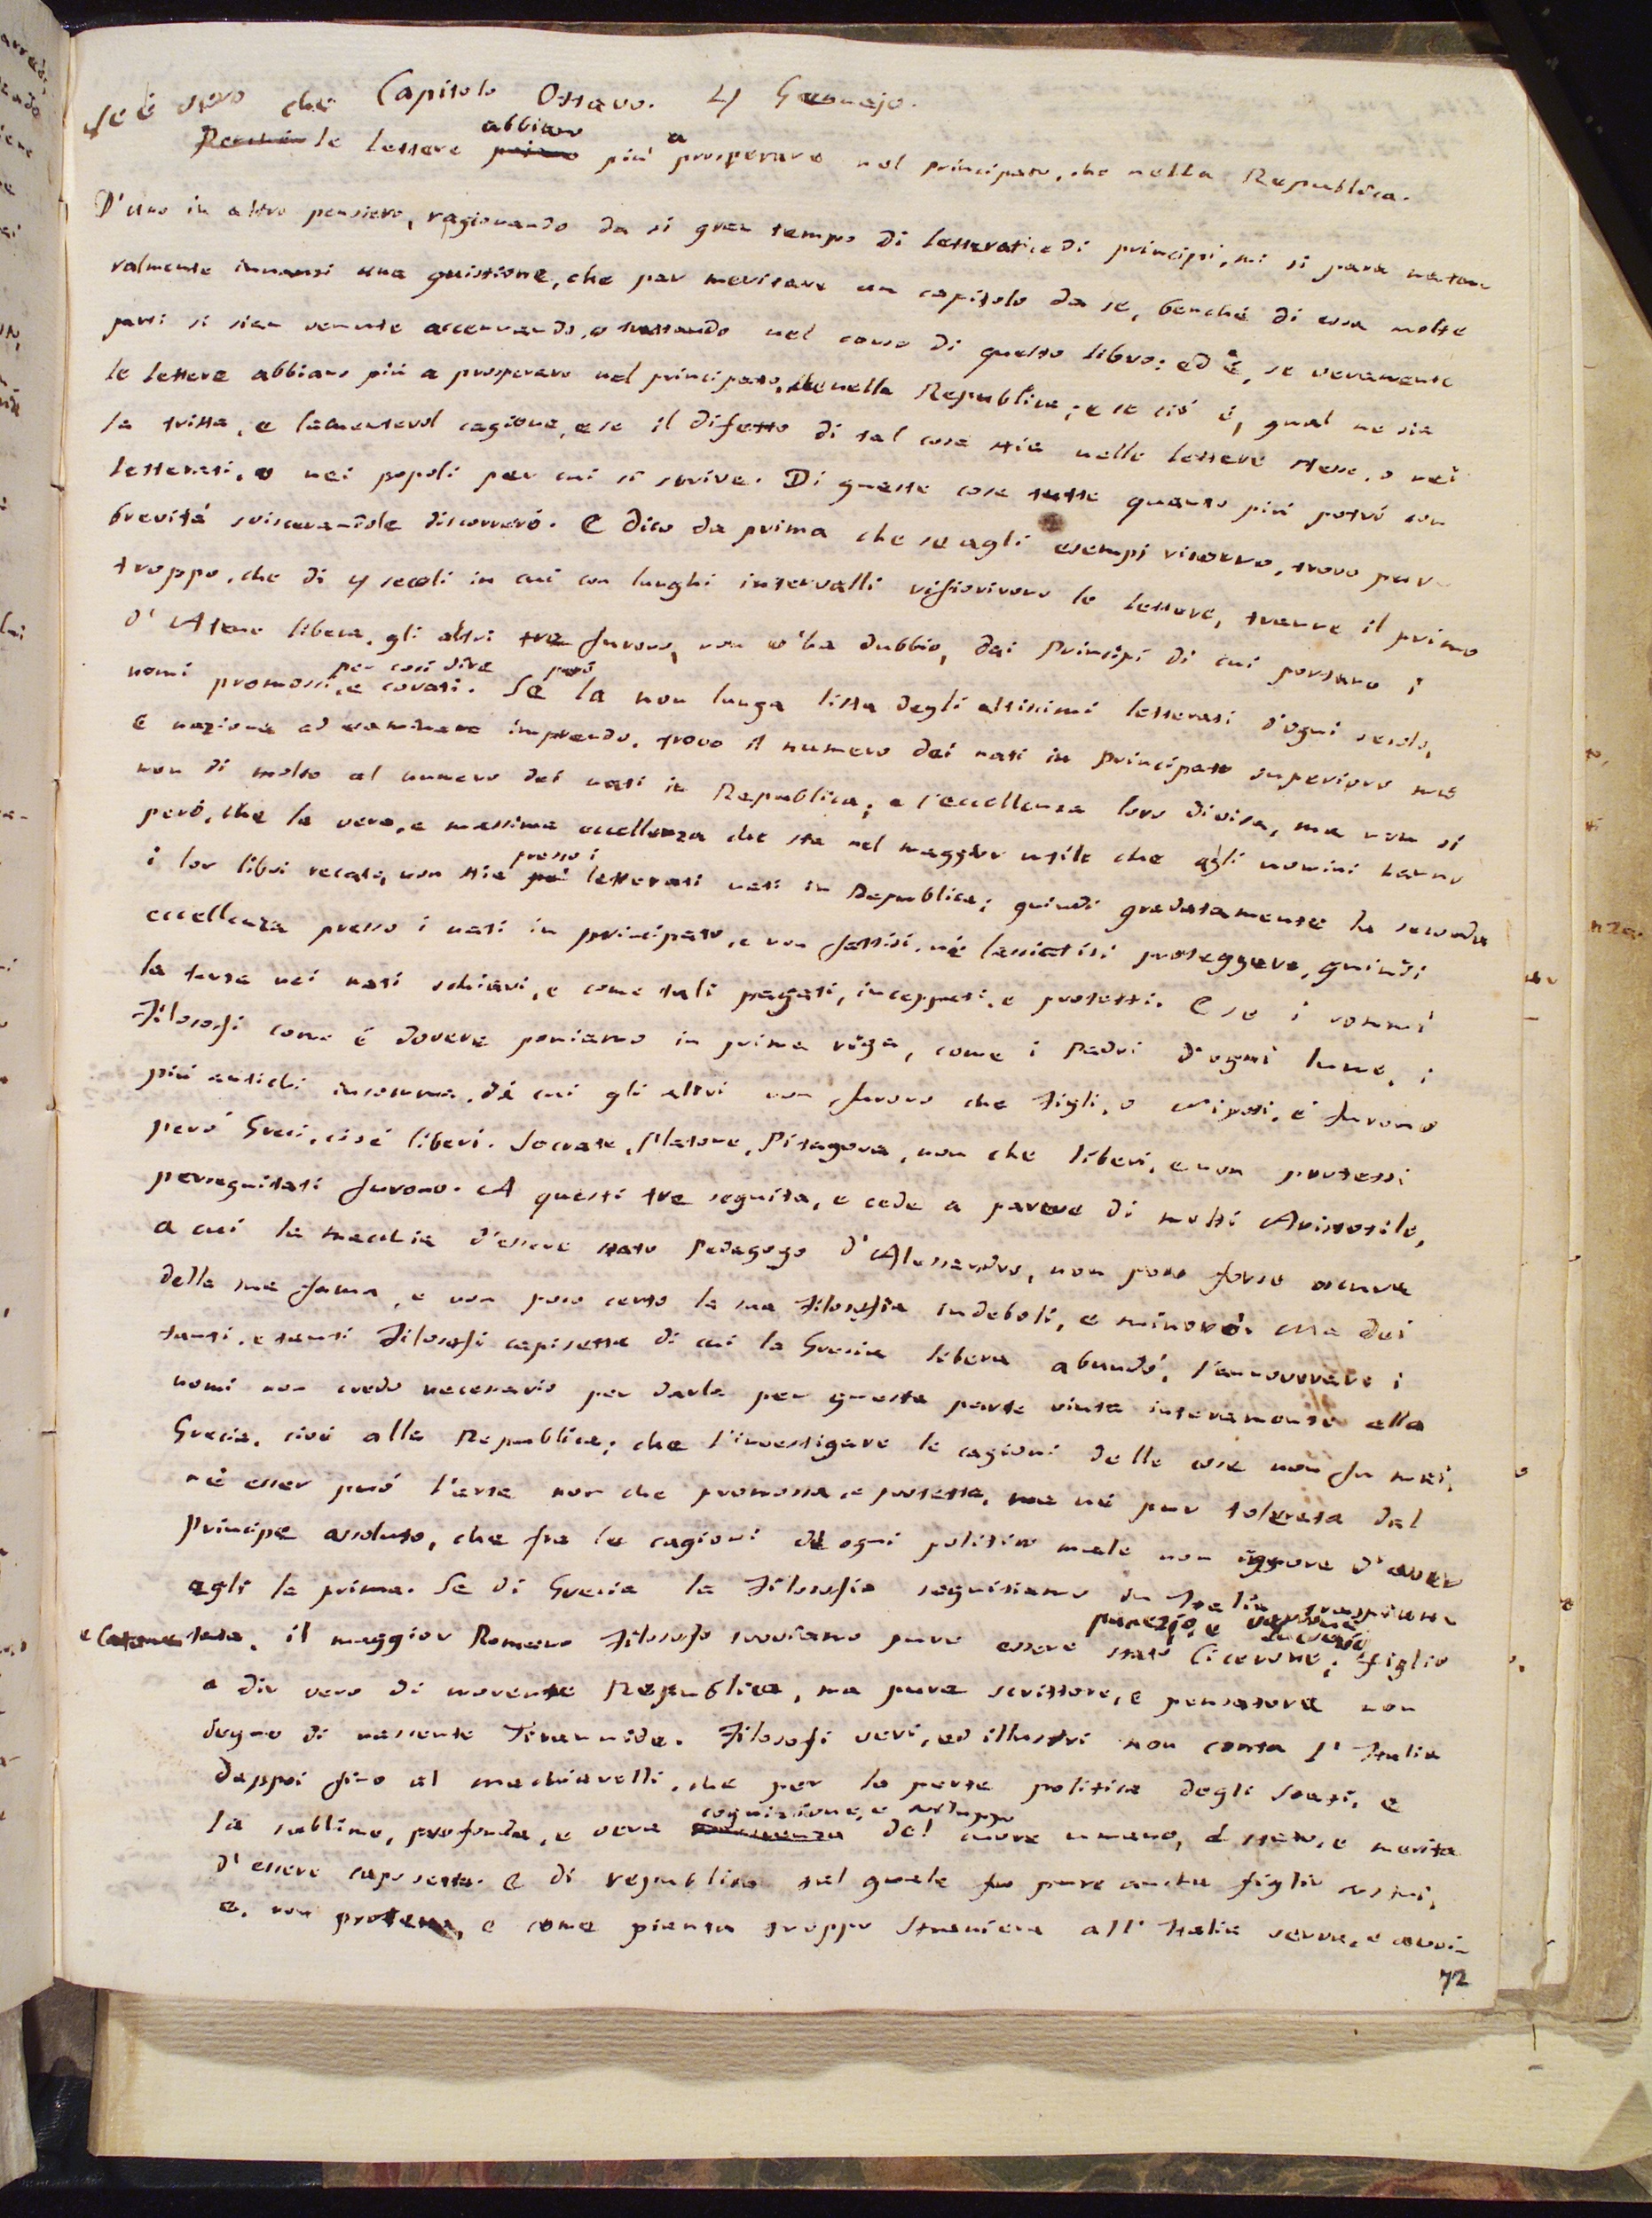 Capitolo Ottavo. 4 Gennajo.
Se è vero che
abbiano a
Perchè le lettere più prosperare nel principato, che nella Republica.
D'uno in altro pensiero, ragionando da sì gran tempo di letterati e di principi, mi si para natu-
ralmente innanzi una quistione, che par meritare un capitolo da se, benchè di essa molte
parti si sian venute accennando, o trattando nel corso di questo libro: ed è, se veramente
le lettere abbiano più a prosperare nel principato, che nella Republica; e se ciò è, qual ne sia
la trista, e lamentevol cagione, e se il difetto di tal cosa stia nelle lettere stesse, o nei
letterati, o nei popoli per cui si scrive. Di queste cose tutte quanto più potrò con
brevità sviscerandole discorrerò. E dico da prima che se agli esempj ricorro, trovo pur
troppo, che di 4 secoli in cui con lunghi intervalli rifiorirono le lettere, tranne il primo
d'Atene libera, gli altri tre furono, non v'ha dubbio, dai Principi di cui portano i
per così dire però
nomi promossi, e covati. Se la non lunga lista degli altissimi letterati d'ogni secolo,
e nazione ad esaminare imprendo, trovo il numero dei nati in Principato superiore ma
non di molto al numero dei nati in Republica; e l'eccellenza loro divisa, ma non sì
però, che la vera, e massima eccellenza che sta nel maggior utile che agli uomini hanno
presso i
i lor libri recato, non stia letterati nati in Republica; quindi gradatamente la seconda
eccellenza presso i nati in principato, e non fattisi, nè lasciatisi proteggere, quindi
la terza nei nati schiavi, e come tali pagati, inceppati, e protetti. E se i sommi
Filosofi come è dovere poniamo in prima riga, come i Padri d'ogni lume, i
più antichi insomma, di cui gli altri non furono che figli, o nipoti, e' furono
però Greci, cioè liberi. Socrate, Platone, Pitagora, non che liberi, e non protetti
perseguitati furono. A questi tre seguita, e cede a parere di molti Aristotile,
a cui la macchia d'essere stato Pedagogo d'Alessandro, non poco forse oscura
della sua fama, e non poco certo la sua Filosofia indebolì, e minorò. Ma dei
tanti, e tanti Filosofi capisetta di cui la Grecia libera abundò, l'annoverare i
nomi non credo necessario per darla per questa parte vinta interamente alla
Grecia, cioè alla Republica; che l'investigare le cagioni delle cose non fu mai,
nè esser può l'arte non che promossa, e protetta, ma nè pur tolerata dal
Principe assoluto, che fra le cagioni di ogni politico male non ignora d'esser
egli la prima. Se di Grecia la Filosofia seguitiamo in Italia traspian-
panezio, e varrone
lucrezio
e Catone tata, il maggior Romano Filosofo troviamo pure essere stato Cicerone; figlio
a dir vero di morente Republica, ma pure scrittore, e pensatore non
degno di nascente Tirannide. Filosofi veri, ed illustri non conta l'Italia
dappoi fino al machiavelli, che per la parte politica degli stati, e
cognizione, e sviluppo
la sublime, profonda, e vera del cuore umano, è stato, e merita
d'essere caposetta. E di republica tal quale fu pure anche figlio costui,
e non protetto, e come pianta troppo straniera all'Italia serva, e
72